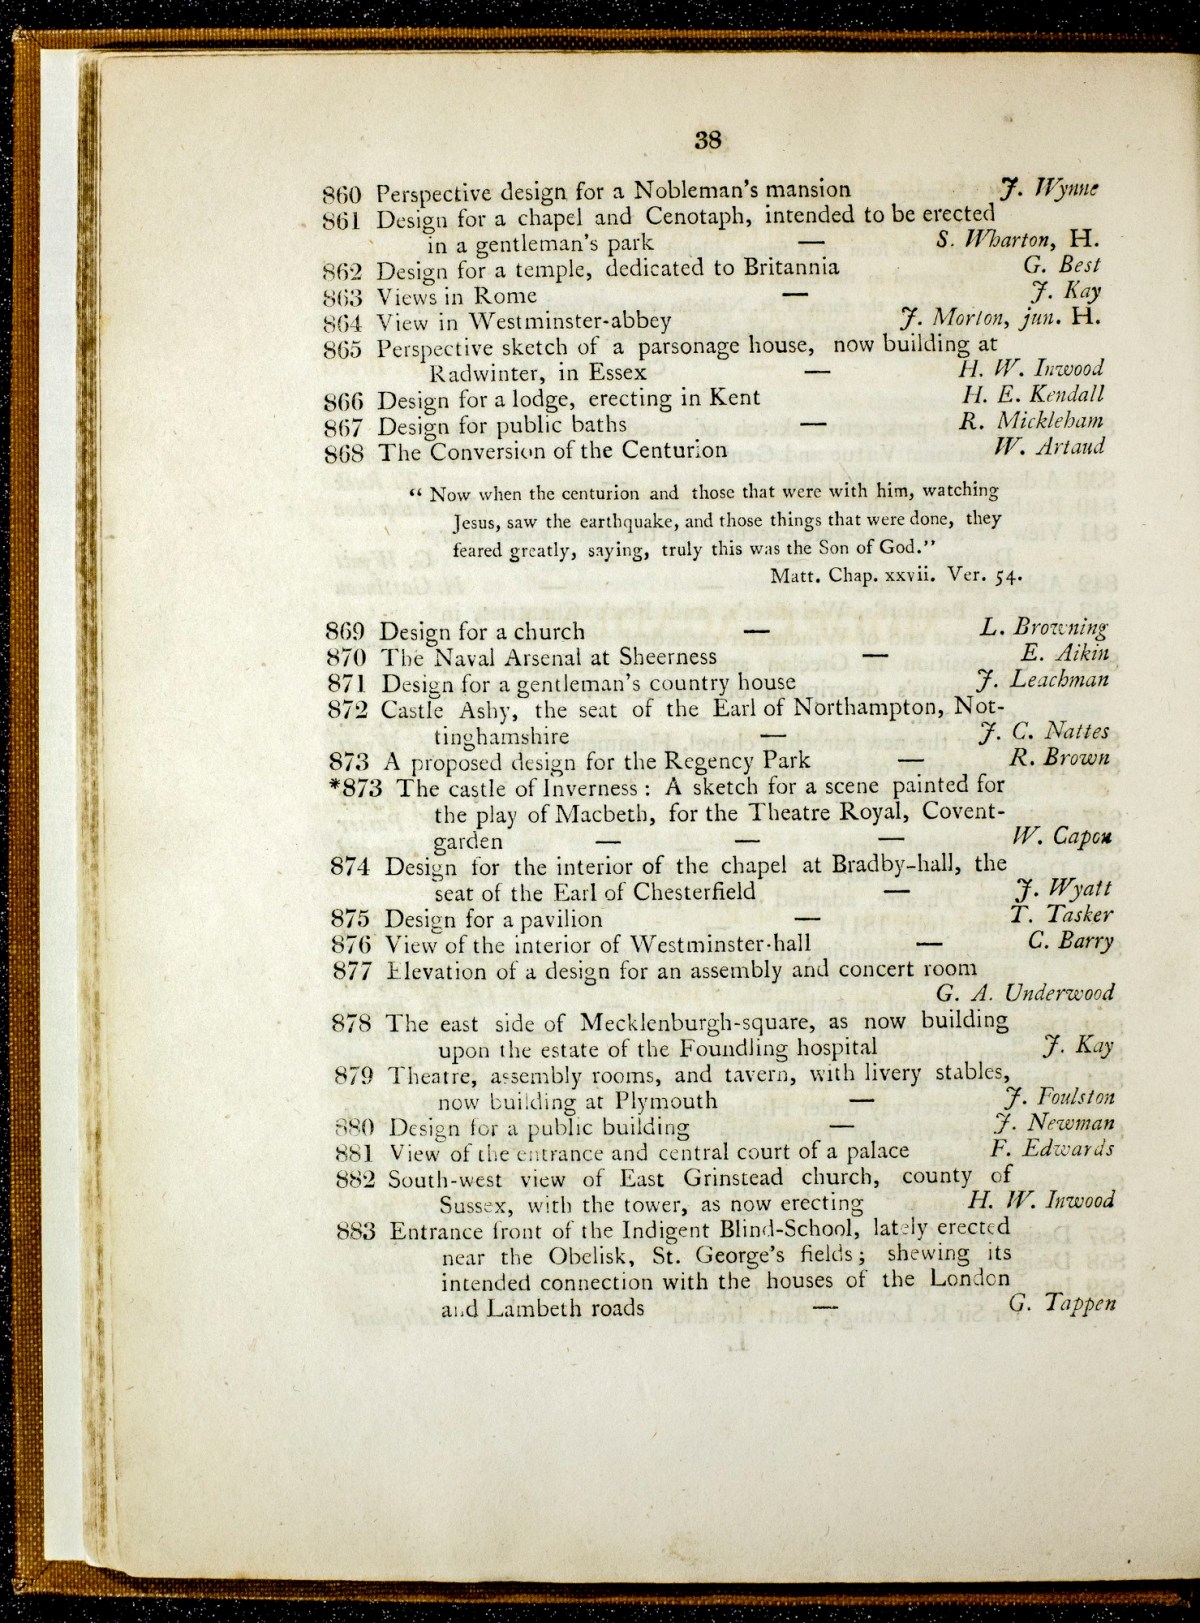 38
860 Perspective design for a Nobleman's mansion J. Wynne
861 Design for a chapel and Cenotaph, intended to be erected
in a gentleman's park — S. Wharton, H.
862 Design for a temple, dedicated to Britannia G. Best
863 Views in Rome — J. Kay
864 View in Westminster-abbey J. Morton, jun. H.
865 Perspective sketch of a parsonage house, now building at
Radwinter, in Essex — H. W. Inwood
866 Design for a lodge, erecting in Kent H. E. Kendall
867 Design for public baths — R. Mickleham
868 The Conversion of the Centurion W. Artaud
“ Now when the centurion and those that were with him, watching
Jesus, saw the earthquake, and those things that were done, they
feared greatly, saying, truly this was the Son of God.”
Matt. Chap. xxvii. Ver. 54.
869 Design for a church — L. Browning
870 The Naval Arsenal at Sheerness — E. Aikin
871 Design for a gentleman's country house J. Leachman
872 Castle Ashy, the seat of the Earl of Northampton, Not-
tinghamshire — J. C. Nattes
873 A proposed design for the Regency Park — R. Brown
*873 The castle of Inverness : A sketch for a scene painted for
the play of Macbeth, for the Theatre Royal, Covent-
garden — — — W. Capon
874 Design for the interior of the chapel at Bradby-hall, the
seat of the Earl of Chesterfield — J. Wyatt
875 Design for a pavilion — T. Tasker
876 View of the interior of Westminster-hall — C. Barry
877 Elevation of a design for an assembly and concert room
G. A. Underwood
878 The east side of Mecklenburgh-square, as now building
upon the estate of the Foundling hospital J. Kay
879 Theatre, assembly rooms, and tavern, with livery stables,
now building at Plymouth — J. Foulston
880 Design for a public building — J. Newman
881 View of the entrance and central court of a palace F. Edwards
882 South-west view of East Grinstead church, county of
Sussex, with the tower, as now erecting H. W. Inwood
883 Entrance front of the Indigent Blind-School, lately erected
near the Obelisk, St. George's fields ; shewing its
intended connection with the houses of the London
and Lambeth roads — G. Tappen